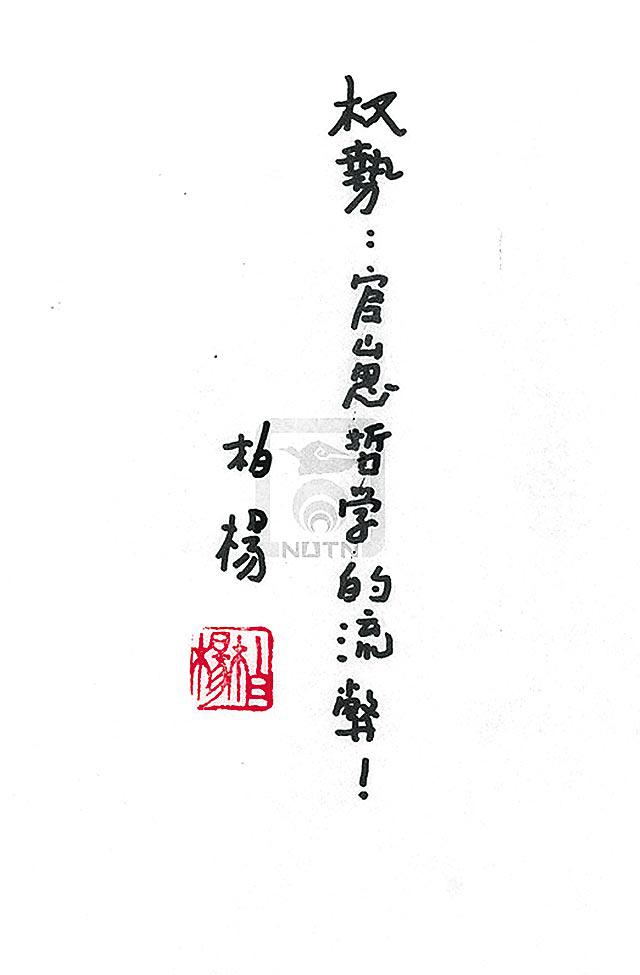 权勢：官崽哲学的流弊！
柏楊
柏楊
NUTN